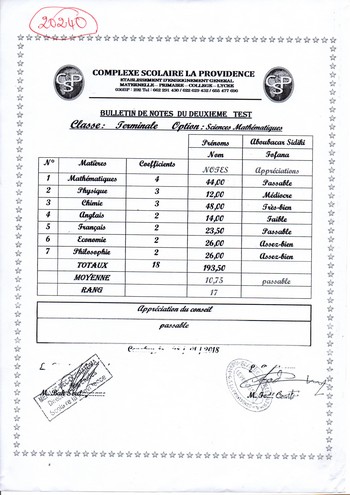 20240
COMPLEXE SCOLAIRE LA PROVIDENCE
ETABLISSEMENT D'ENSEIGNEMENT GENERAL
MATERNELLE - PRIMAIRE - COLLEGE - LYCEE
BULLETIN DE NOTES DU DEUXIEME TEST
Classe: Terminale Option: Sciences Mathématiques
Prénoms Aboubacar Sidiki
Nom Fofana
N° Matières Coefficients NOTES Appréciations
1 Mathématiques 4 44,00 Passable
2 Physique 3 12,00 Médiocre
3 Chimie 3 48,00 Très-bien
4 Anglais 2 14,00 Faible
5 Français 2 23,50 Passable
6 Economie 2 26,00 Assez-bien
7 Philosophie 2 26,00 Assez-bien
TOTAUX 18 193,50
MOYENNE 10,75 passable
RANG 17
Appréciation du conseil
passable